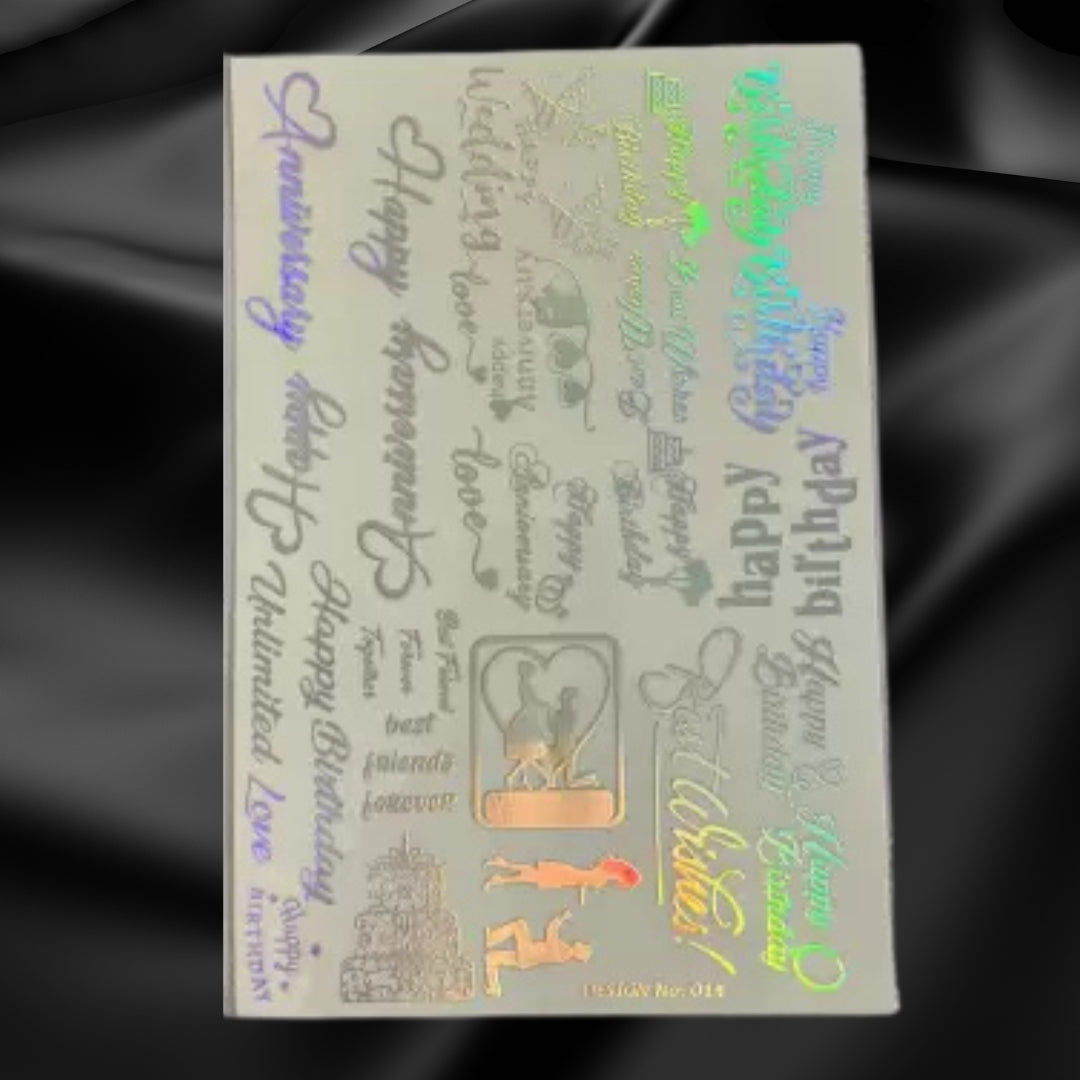 Anniversary
Happy
Happy
Anniversary
Unlimited Love
Happy Birthday
Happy
BIRTHDAY
Wedding
love
Happy
Anniversary
love
Happy
Anniversary
Best Friend
Forever
Together
best
friends
forever
Happy
Birthday
Best Wishes
Best Wishes
Happy
Birthday
Best Wishes!
Happy
Birthday
Happy
Birthday
happy
birthday
Happy
Birthday
Happy
Birthday
DESIGN No: 014